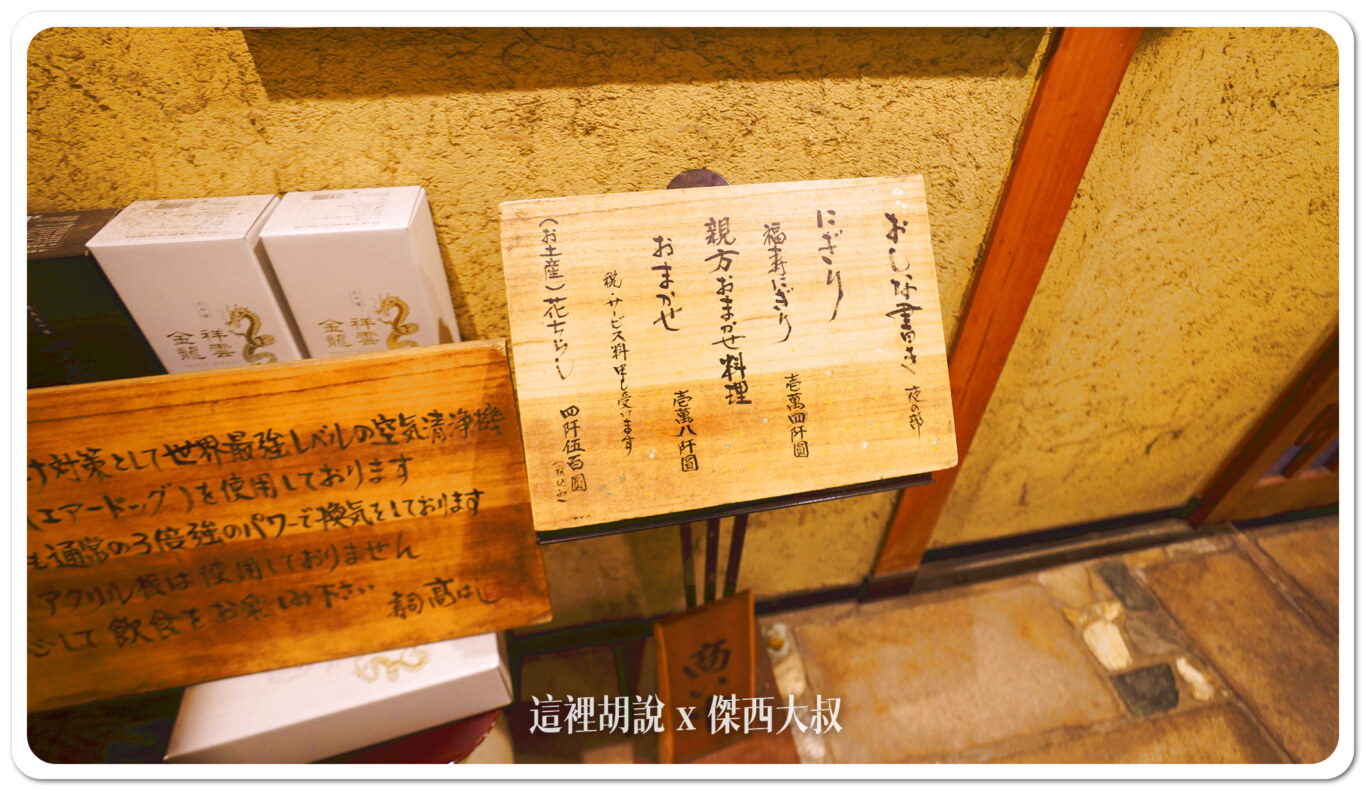 おしな書き 夜の部
にぎり
福寿にぎり 壱萬四阡圓
親方おまかせ料理
おまかせ 壱萬八阡圓
税・サービス料申し受けます
(お土産)花ちらし 四阡伍百圓
(税込み)
対策として世界最強レベルの空気清浄機
(エアードッグ)を使用しております
も通常の3倍強のパワーで換気をしております
アクリル板は使用しておりません
心して飲食をお楽しみ下さい
寿司高はし
祥雲
金龍
祥雲
金龍
商い
這裡胡說 x 傑西大叔